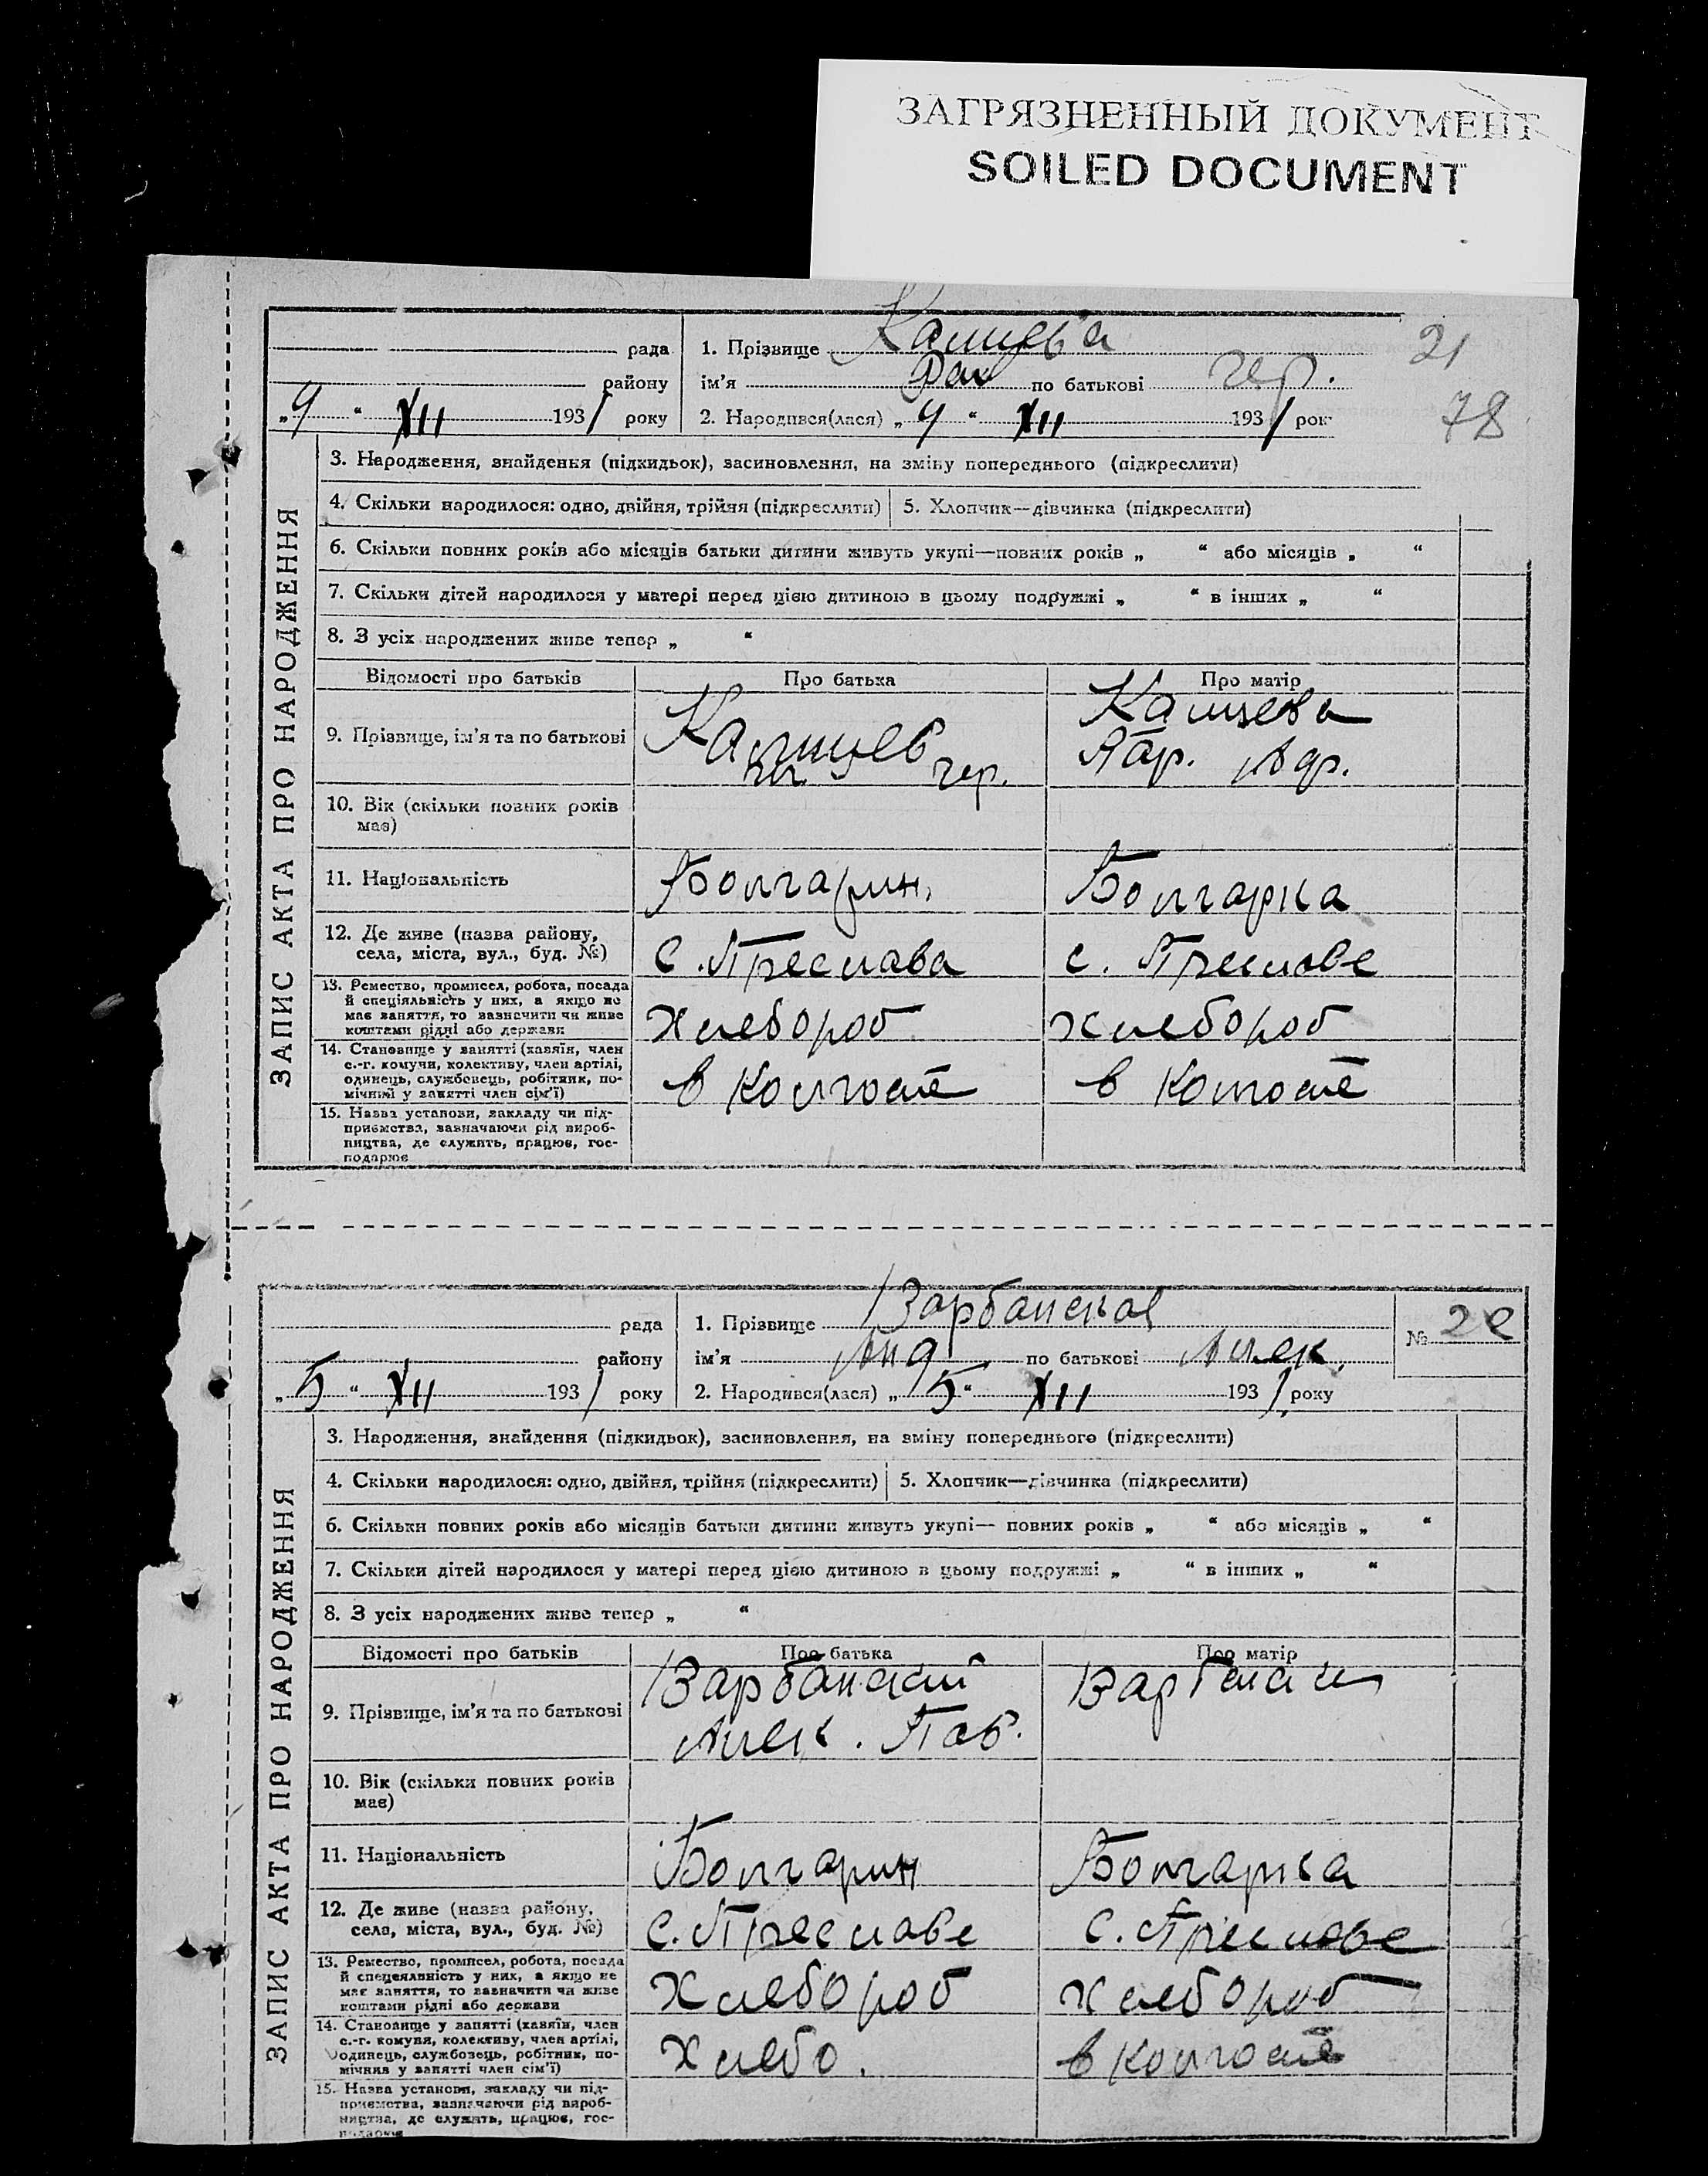 ЗАГРЯЗНЕННЫЙ ДОКУМЕНТ
SOILED DOCUMENT
ЗАПИС АКТА ПРО НАРОДЖЕННЯ
рада
району
„4“ XII 1931 року
1. Прізвище
ім’я по батькові
21
2. Народився(лася) „4“ XII 1931 рок
78
3. Народження, знайдення (підкидьок), засиновлення, на зміну попереднього (підкреслити)
4. Скільки народилося: одно, двійня, трійня (підкреслити) 5. Хлопчик—дівчинка (підкреслити)
6. Скільки повних років або місяців батьки дитини живуть укупі—повних років „ “ або місяців „ “
7. Скільки дітей народилося у матері перед цією дитиною в цьому подружжі „ “ в інших „ “
8. З усіх народжених живе тепер „ “
Відомості про батьків Про батька Про матір
9. Прізвище, ім’я та по батькові
10. Вік (скільки повних років
має)
11. Національність Болгарин Болгарка
12. Де живе (назва району,
села, міста, вул., буд. №) с. Преслава с. Преславе
13. Ремество, промисел, робота, посада
й спеціяльність у них, а якщо не
має заняття, то зазначити чи живе
коштами рідні або держави хлебороб хлебороб
14. Становище у занятті (хазяїн, член
с.-г. комуни, колективу, член артілі,
одинець, службовець, робітник, по-
мічний у занятті член сім’ї) в колгоспе в колгоспе
15. Назва установи, закладу чи під-
приємства, зазначаючи рід вироб-
ництва, де служить, працює, гос-
подарює
ЗАПИС АКТА ПРО НАРОДЖЕННЯ
рада
району
„5“ XII 1931 року
1. Прізвище Варбанская
№ 22
ім’я Анд по батькові Алек.
2. Народився(лася) „5“ XII 1931 року
3. Народження, знайдення (підкидьок), засиновлення, на зміну попереднього (підкреслити)
4. Скільки народилося: одно, двійня, трійня (підкреслити) 5. Хлопчик—дівчинка (підкреслити)
6. Скільки повних років або місяців батьки дитини живуть укупі— повних років „ “ або місяців „ “
7. Скільки дітей народилося у матері перед цією дитиною в цьому подружжі „ “ в інших „ “
8. З усіх народжених живе тепер „ “
Відомості про батьків Про батька Про матір
9. Прізвище, ім’я та по батькові Варбанский
Алек. Пав.
10. Вік (скільки повних років
має)
11. Національність Болгарин Болгарка
12. Де живе (назва району,
села, міста, вул., буд. №) с. Преславе с. Преславе
13. Ремество, промисел, робота, посада
й спецеяльність у них, а якщо не
має заняття, то зазначити чи живе
коштами рідні або держави хлебороб хлебороб
14. Становище у занятті (хазяїн, член
с.-г. комуни, колективу, член артілі,
одинець, службовець, робітник, по-
мічник у занятті член сім’ї) хлебо. в колгоспе
15. Назва установи, закладу чи під-
приємства, зазначаючи рід вироб-
ництва, де служить, працює, гос-
подарює